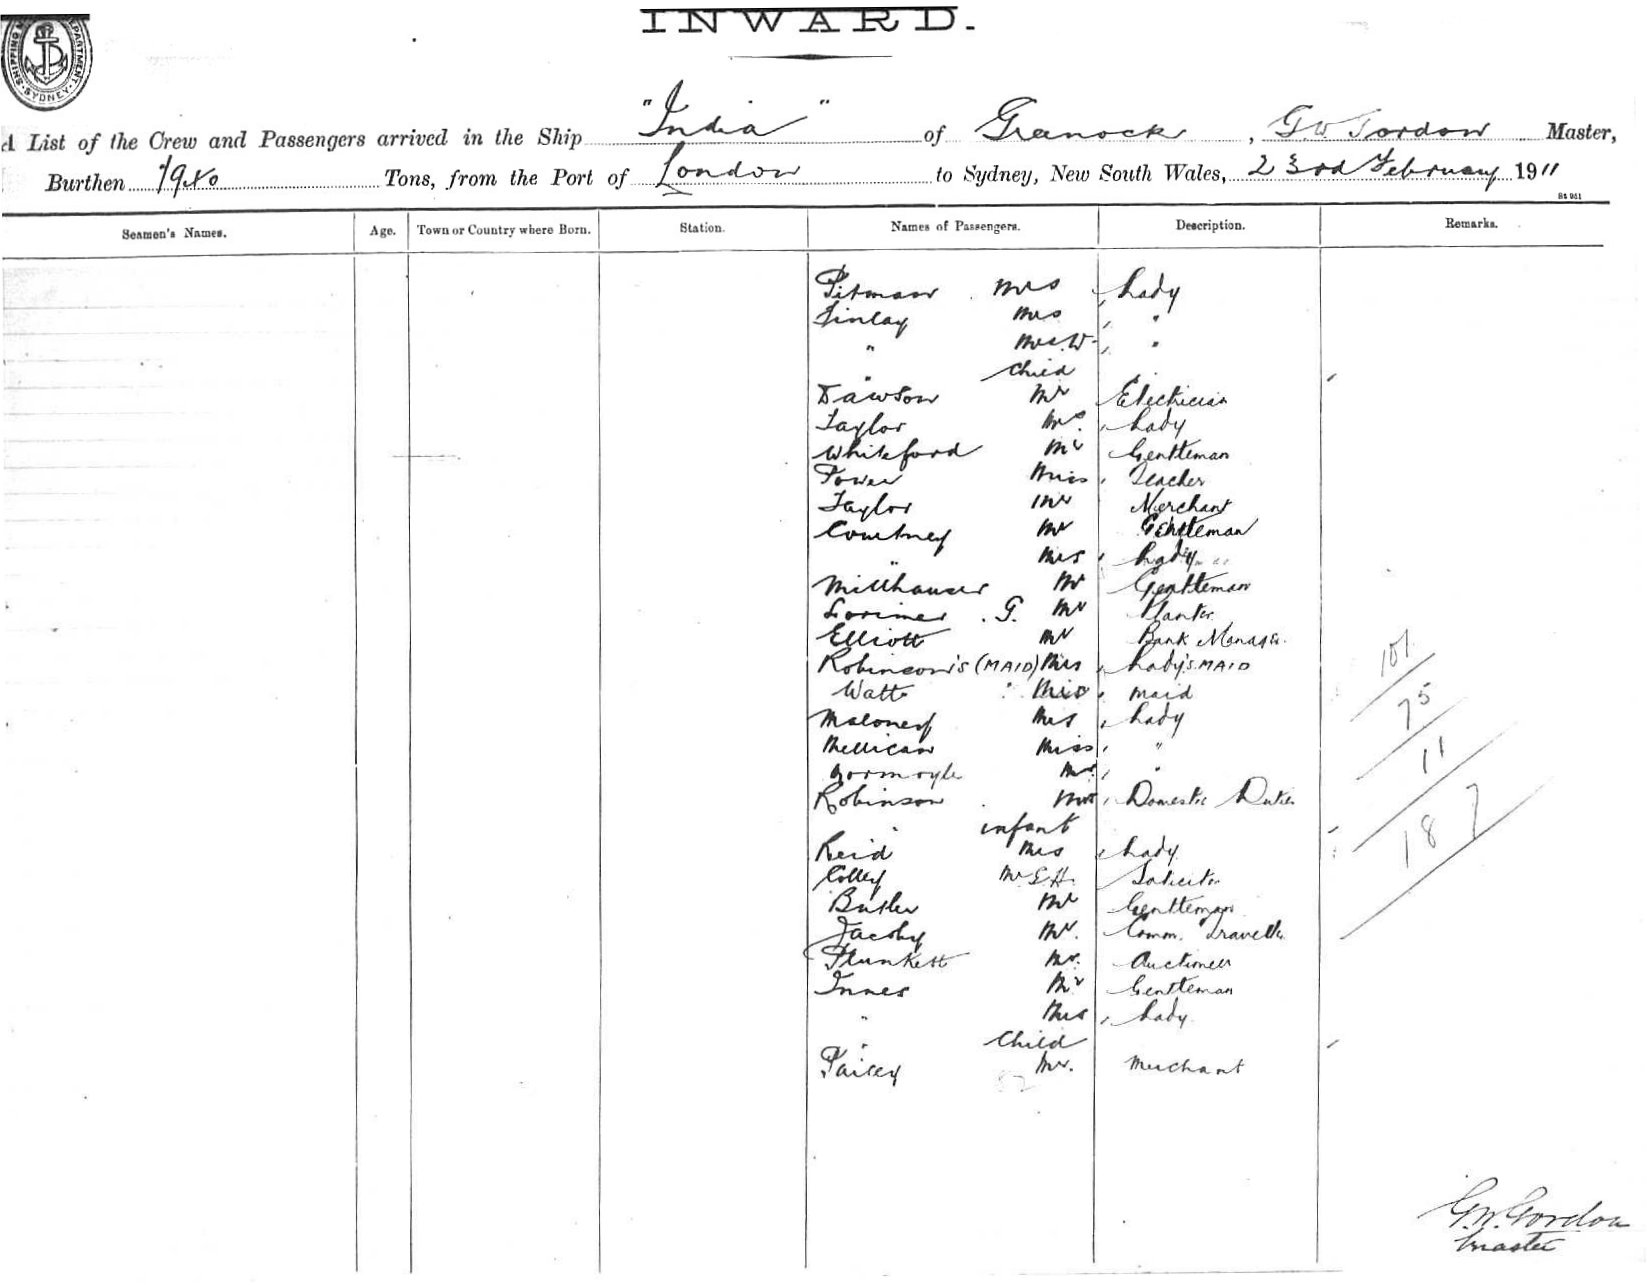 INWARD.
SHIPPING DEPARTMENT SYDNEY
A List of the Crew and Passengers arrived in the Ship "India" of Greenock, G W Gordon Master,
Burthen Tons, from the Port of London to Sydney, New South Wales, 23rd February 1911
Seamen's Names. Age. Town or Country where Born. Station. Names of Passengers. Description. Remarks.
Pitman Mrs Lady
Finlay Mrs "
" Mrs W "
" Child
Dawson Mr Electrician
Taylor Mrs Lady
Whiteford Mr Gentleman
Power Miss Teacher
Taylor Mr Merchant
Courtney Mr Gentleman
" Mrs Lady
Millhauser Mr Gentleman
Lorimer G. Mr Planter
Elliott Mr Bank Manager
Robinson's (MAID) Miss Lady's MAID
Watt " Miss maid
Maloney Mrs Lady
Mellican Miss "
Gormoyle "
Robinson Mrs Domestic Duties
" infant
Reid Mrs Lady
Colley Mr E H. Solicitor
Butler Mr Gentleman
Jacoby Mr. Comm. Traveller
Plunkett Mr. Auctioneer
Innes Mr Gentleman
" Mrs Lady
" Child
Paisey Mr. Merchant
101
75
11
187
G.W. Gordon
Master